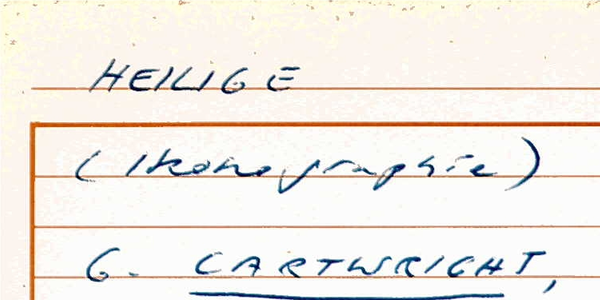 HEILIGE
(Ikonographie)
G. CARTWRIGHT,